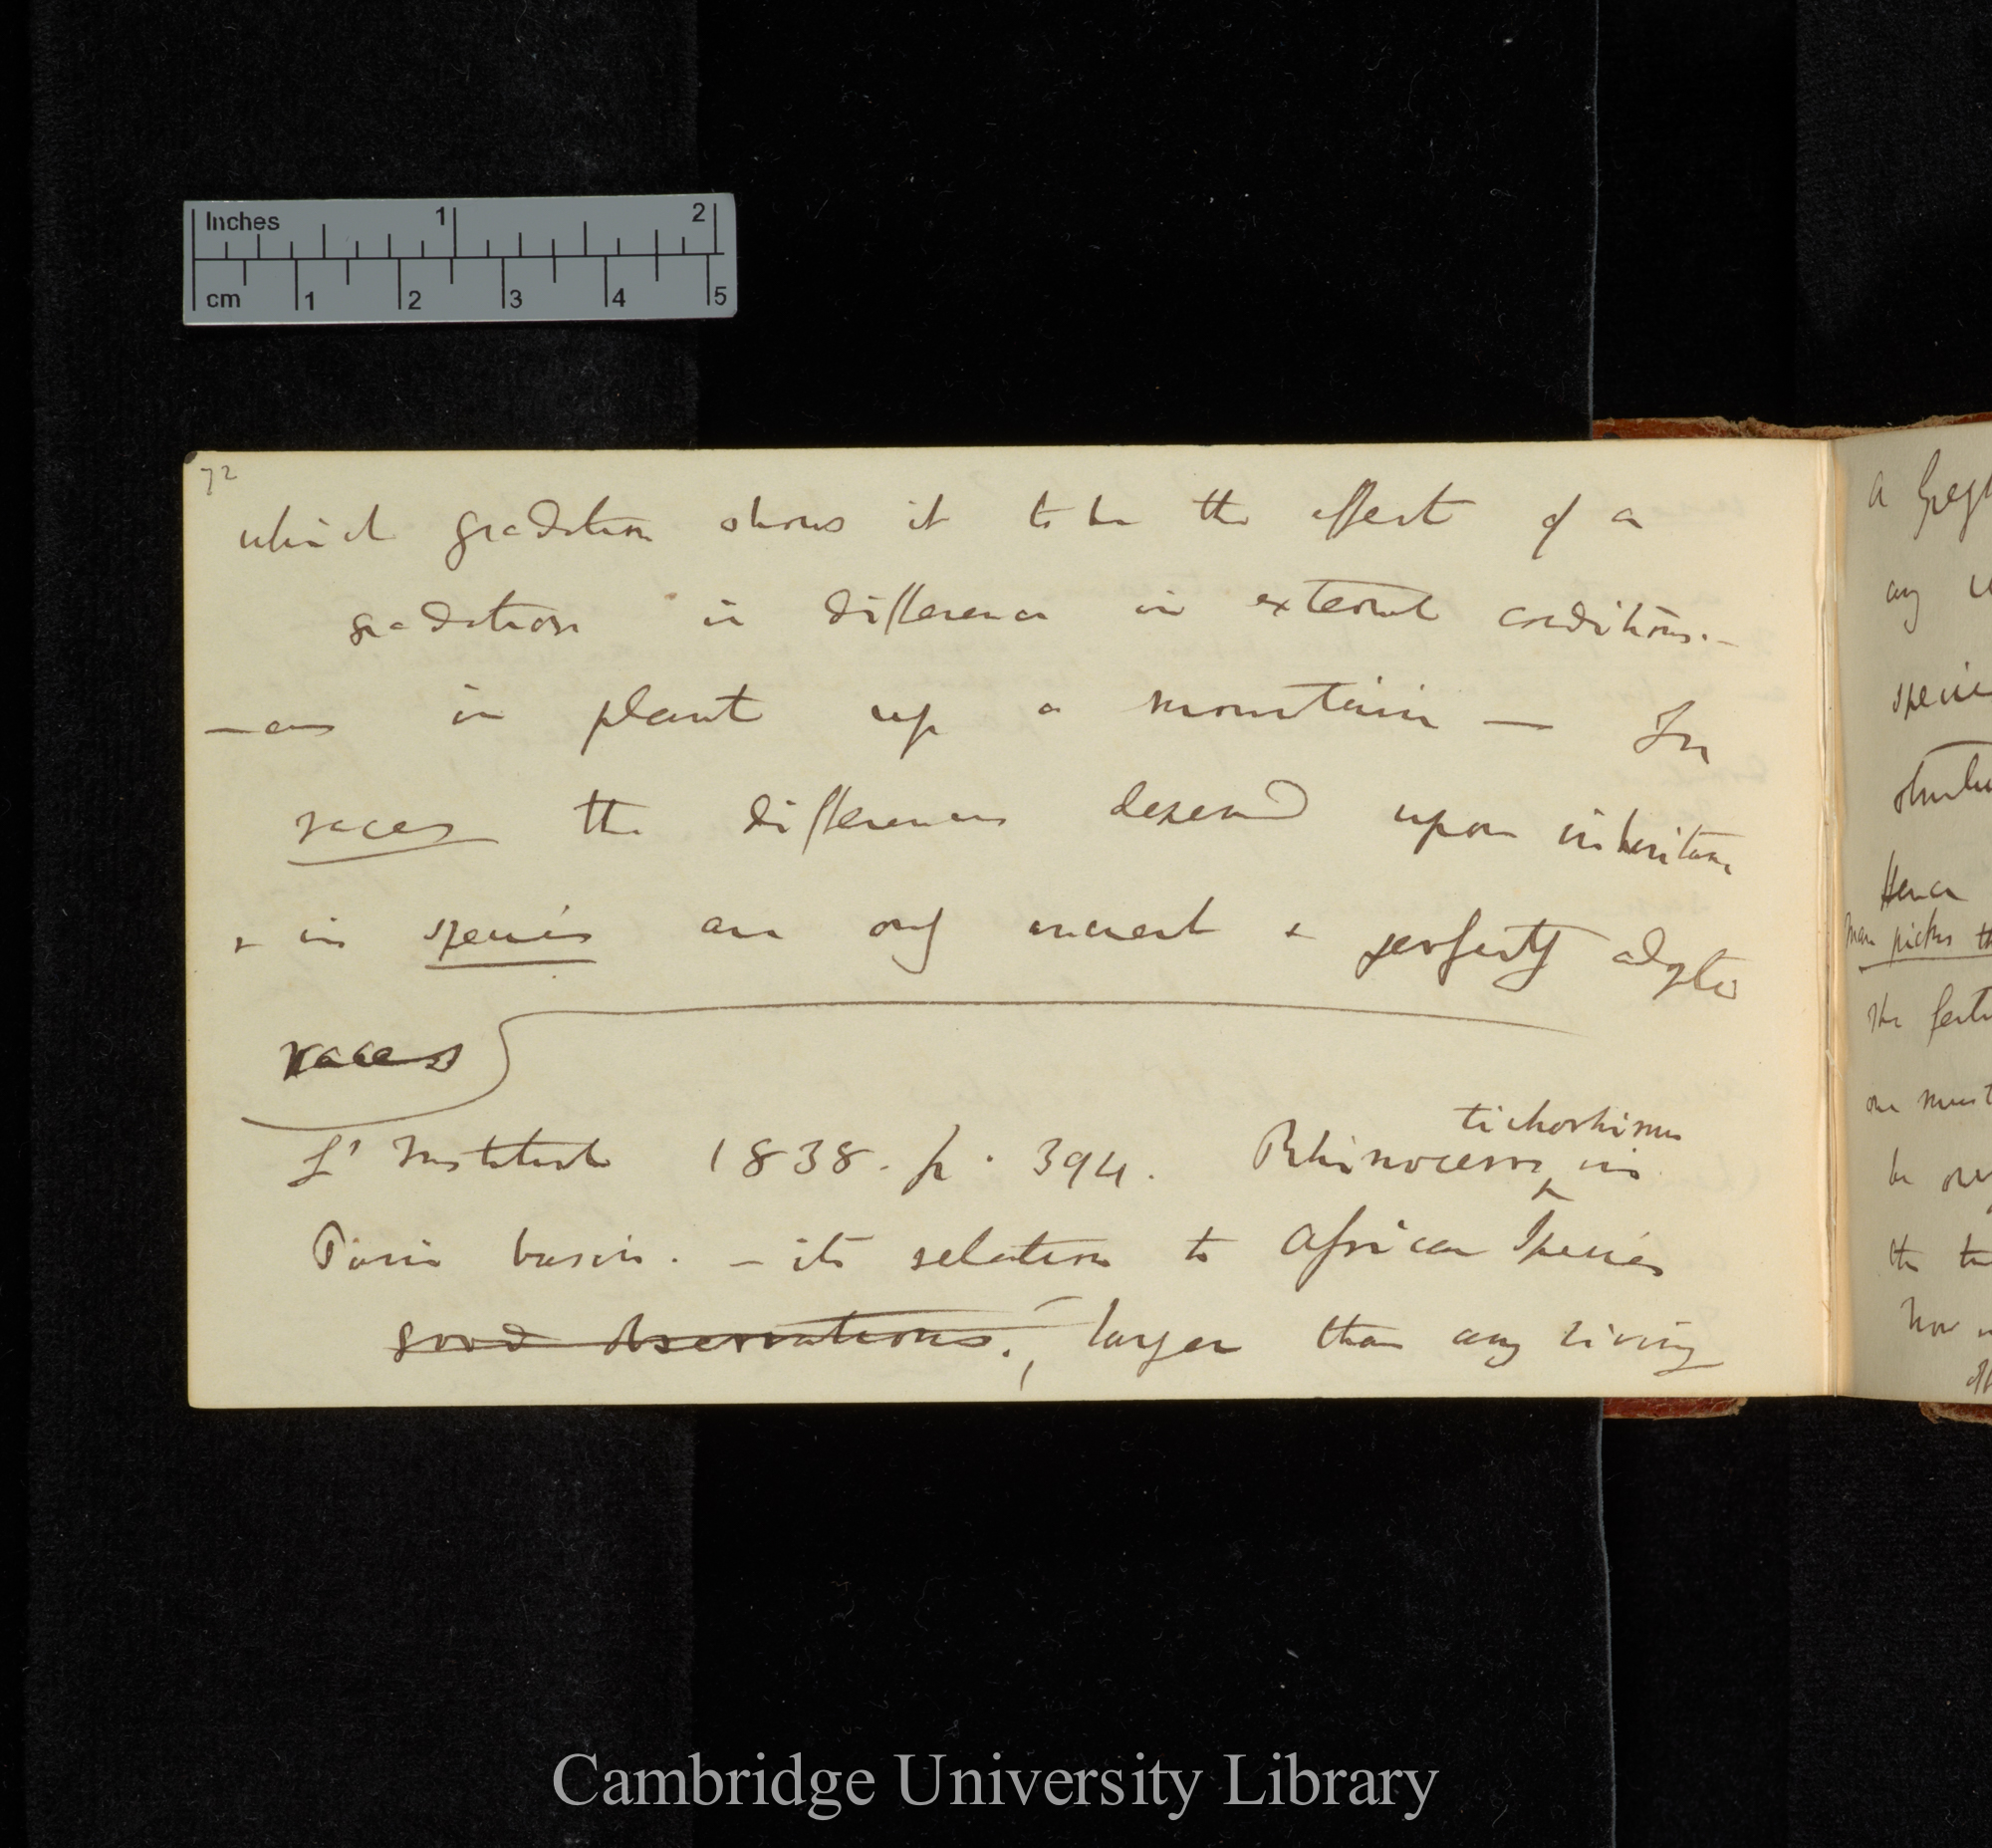 Inches 1 2
cm 1 2 3 4 5
72
which gradation shows it to be the effect of a
gradation in difference in external conditions.—
— as in plant up a mountain — In
races the differences depend upon inheritance
& in species are only ancient & perfectly adapted
races
L' Institut 1838. p. 394. Rhinoceros tichorhinus in
Paris basin. — its relation to African Species
good observations., larger than any living
a
any
species
Hence
man picks th
the
one must
be only
the
how
Cambridge University Library